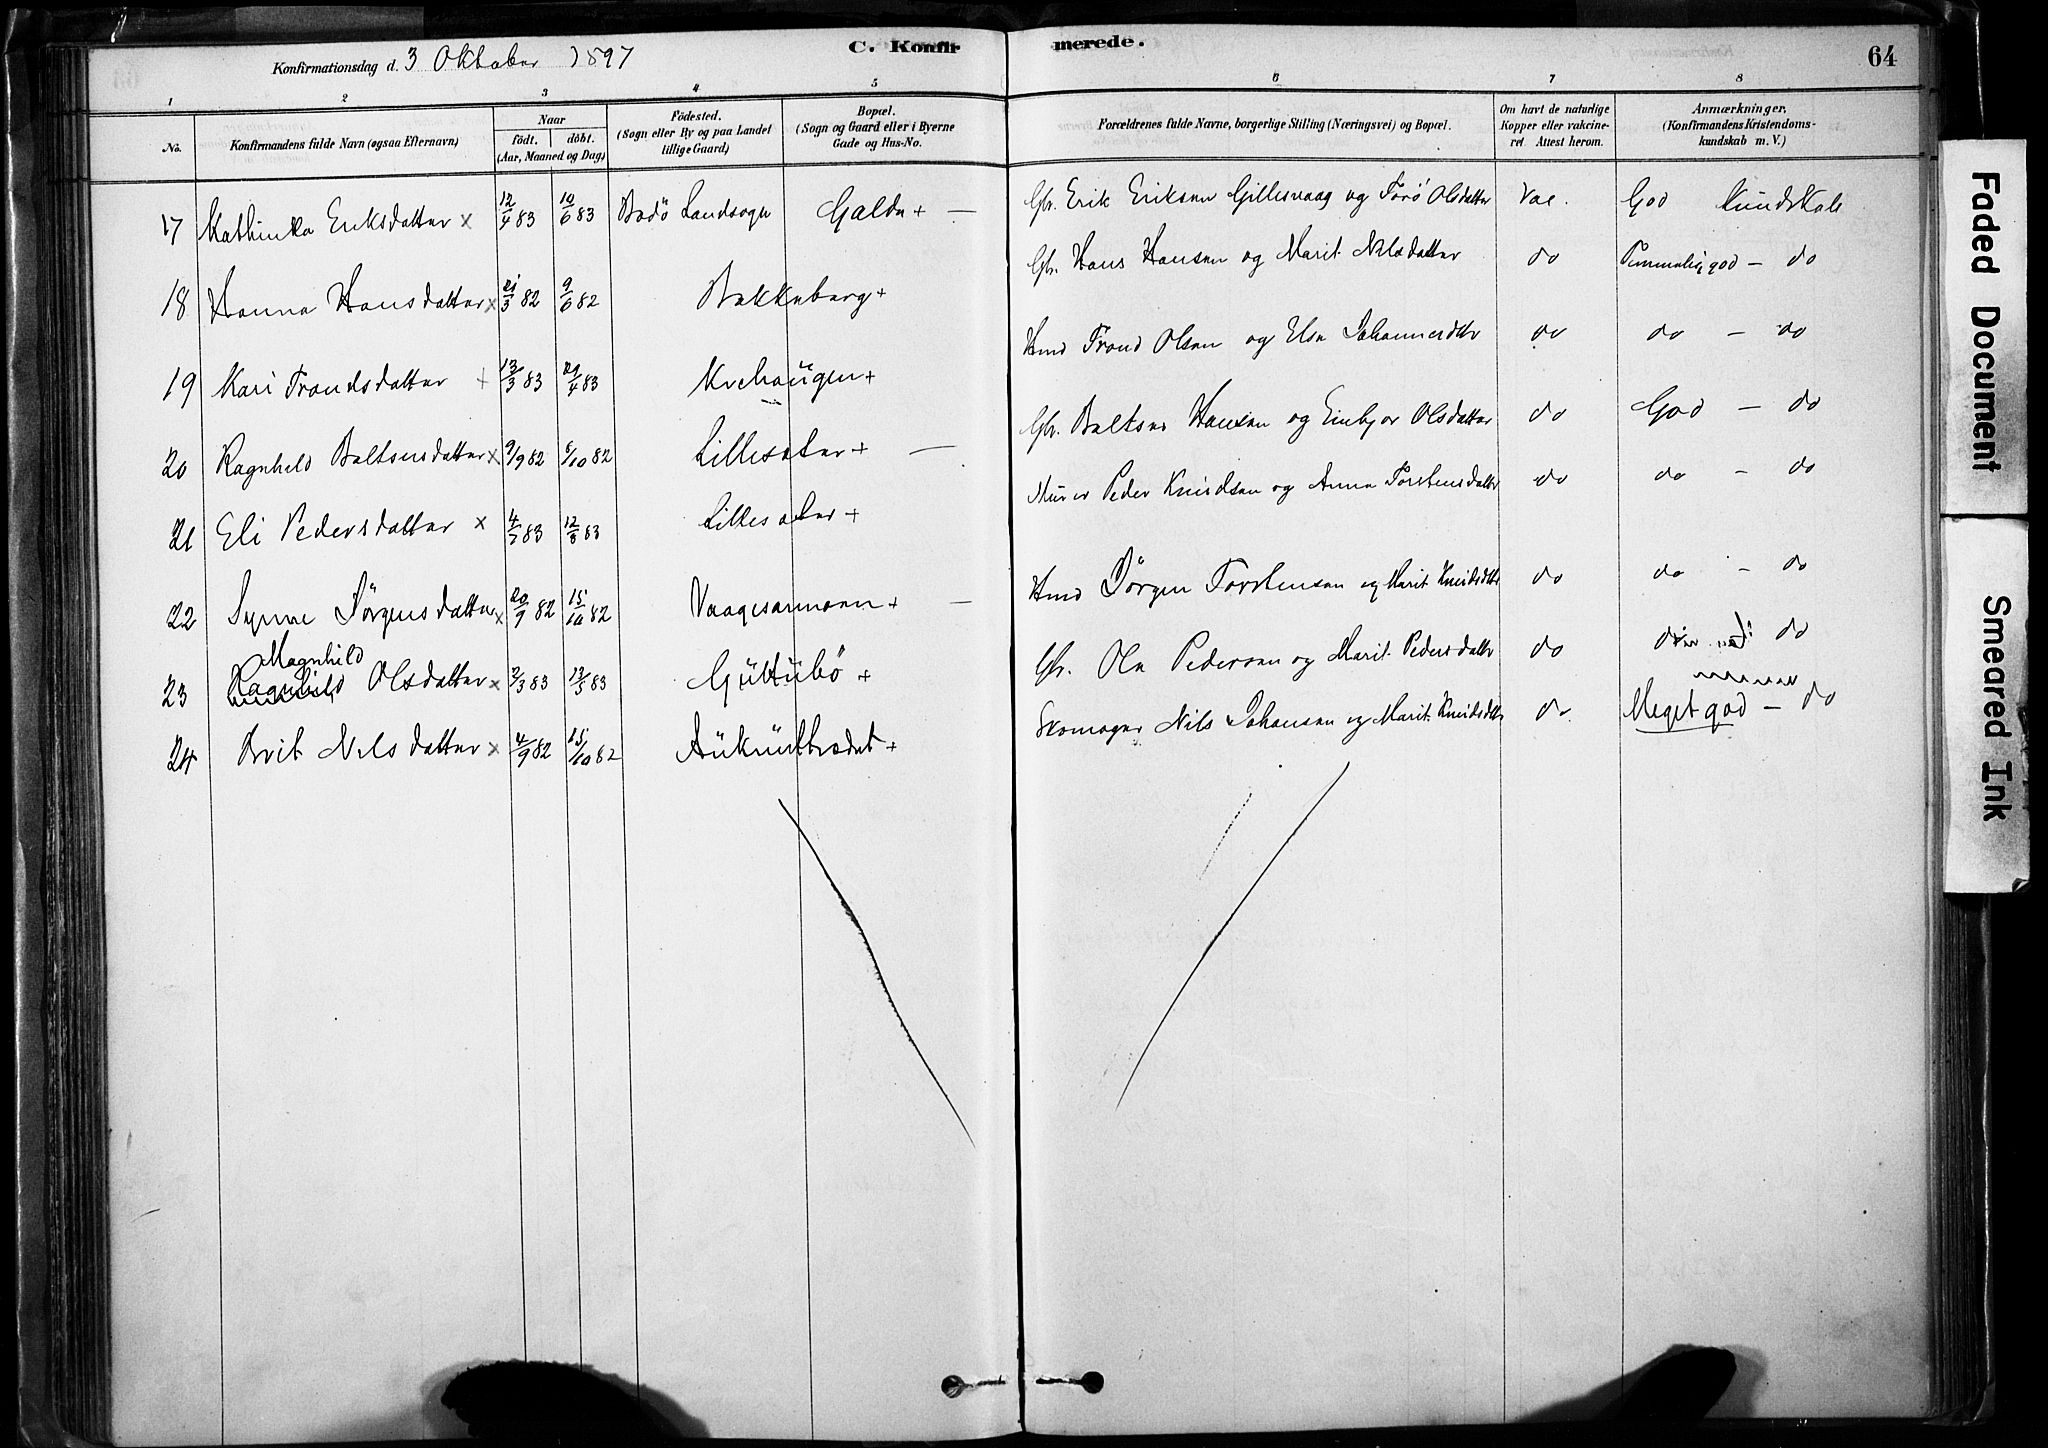 C. Konfirmerede.
64
Konfirmationsdag d. 3 Oktober 1897
1 2 3 4 5 6 7 8
No.
Konfirmandens fulde Navn (ogsaa Efternavn)
Naar
födt. döbt.
(Aar, Maaned og Dag)
Födested.
(Sogn eller By og paa Landet
tillige Gaard)
Bopæl.
(Sogn og Gaard eller i Byerne
Gade og Hus-No.
Forældrenes fulde Navne, borgerlige Stilling (Næringsvei) og Bopæl.
Om havt de naturlige
Kopper eller vakcine-
ret. Attest herom.
Anmærkninger.
(Konfirmandens Kristendoms-
kundskab m. V.)
17 Kathinka Eriksdatter x 12/4 83 10/6 83 Bodö Landsogn Galde + — Gbr. Erik Eriksen Gillesvaag og Toro Olsdatter Vac. God Kundskab
18 Hanna Hansdatter x 21/3 82 9/6 82 Bakkeberg + Gbr. Hans Hansen og Marit Nilsdatter do Temmelig god — do
19 Kari Trondsdatter + 13/3 83 29/4 83 Krehaugen + Hmd Trond Olsen og Else Johannesdtr do do — do
20 Ragnhild Baltsersdatter x 9/9 82 8/10 82 Lillesæter + — Gbr. Baltser Hansen og Embjør Olsdatter do God — do
21 Eli Pedersdatter x 4/7 83 12/8 83 Lillesæter + Murer Peder Knudsen og Anne Torstensdatter do do — do
22 Synne Jörgensdatter x 20/9 82 15/10 82 Vaagesarmoen + — Hmd Jörgen Torstensen og Marit Knudsdtr do do — do
Magnhild
23 Ragnhild Olsdatter x 2/3 83 13/5 83 Guttubö + Gbr. Ole Pedersen og Marit Pedersdatter do do
24 Brit Nilsdatter x 4/9 82 15/10 82 + Skomager Nils Johansen og Marit Knudsdtr do Meget god — do
Faded Document
Smeared Ink